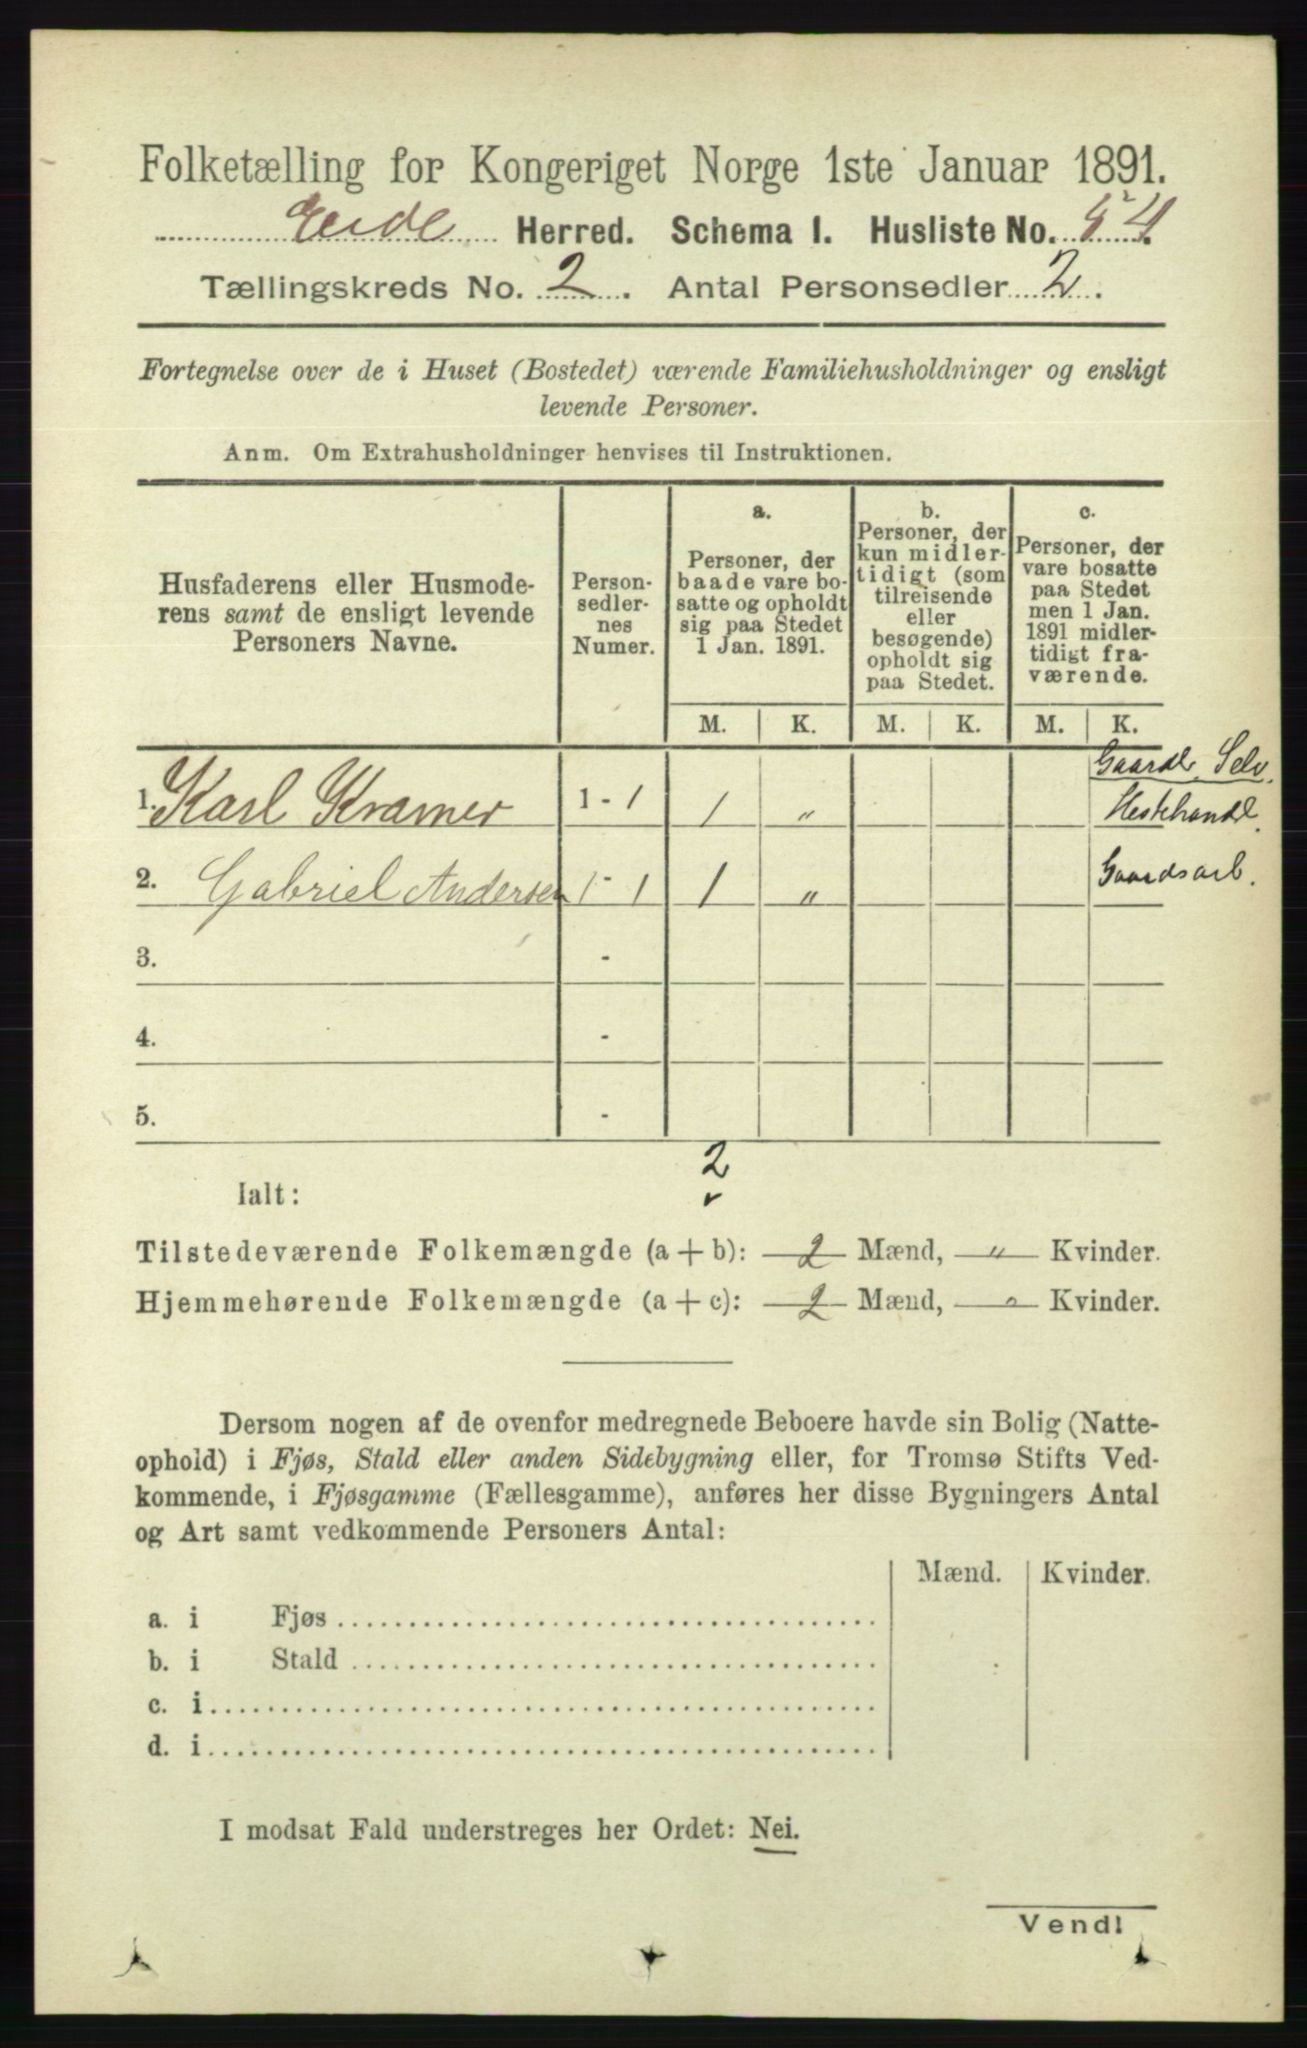 Folketælling for Kongeriget Norge 1ste Januar 1891.
Eide Herred. Schema I. Husliste No. 54.
Tællingskreds No. 2. Antal Personsedler 2.
Fortegnelse over de i Huset (Bostedet) værende Familiehusholdninger og ensligt
levende Personer.
Anm. Om Extrahusholdninger henvises til Instruktionen.
Husfaderens eller Husmode-
rens samt de ensligt levende
Personers Navne.
Person-
sedler-
nes
Numer.
a.
Personer, der
baade vare bo-
satte og opholdt
sig paa Stedet
1 Jan. 1891.
b.
Personer, der
kun midler-
tidigt (som
tilreisende
eller
besøgende)
opholdt sig
paa Stedet.
c.
Personer, der
vare bosatte
paa Stedet
men 1 Jan.
1891 midler-
tidigt fra-
værende.
M. K. M. K. M. K.
Gaardbr. Selv.
1. Karl Kramer 1 - 1 1 „ Hestehandl.
2. Gabriel Andersen 1 - 1 1 „ Gaardsarb.
3. -
4. -
5. -
Ialt: 2
Tilstedeværende Folkemængde (a + b): 2 Mænd, „ Kvinder.
Hjemmehørende Folkemængde (a + c): 2 Mænd, „ Kvinder.
Dersom nogen af de ovenfor medregnede Beboere havde sin Bolig (Natte-
ophold) i Fjøs, Stald eller anden Sidebygning eller, for Tromsø Stifts Ved-
kommende, i Fjøsgamme (Fællesgamme), anføres her disse Bygningers Antal
og Art samt vedkommende Personers Antal:
Mænd. Kvinder.
a. i Fjøs
b. i Stald
c. i
d. i
I modsat Fald understreges her Ordet: Nei.
Vend!